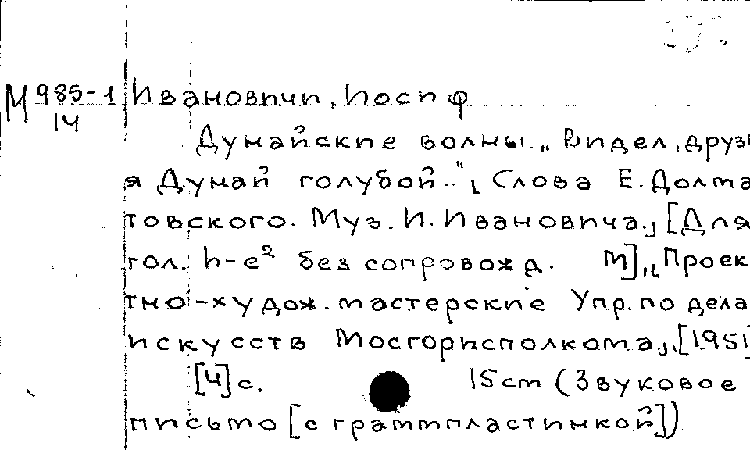 М 985-1 Ивановичи, Иосиф
14
Дунайские волны. „Видел, друзья
я Дунай голубой..", Слова Е. Долма
товского. Муз. И. Ивановича., [Для
гол. h-e² без сопровожд. М], Проек
тно-худож. мастерские Упр. по дела
искусств Мосгорисполкома, [1951]
[4] с. 15 cm (Звуковое
письмо [с грампластинкой])